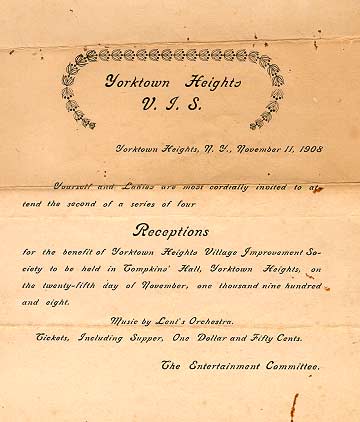 Yorktown Heights
V. I. S.
Yorktown Heights, N. Y., November 11, 1908
Yourself and Ladies are most cordially invited to at-
tend the second of a series of four
Receptions
for the benefit of Yorktown Heights Village Improvement So-
ciety to be held in Tompkins' Hall, Yorktown Heights, on
the twenty-fifth day of November, one thousand nine hundred
and eight.
Music by Lent's Orchestra.
Tickets, Including Supper, One Dollar and Fifty Cents.
The Entertainment Committee.